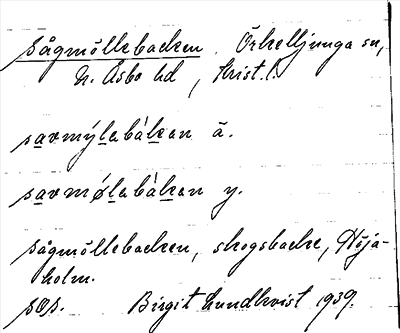 sågmöllebacken. Örkelljunga sn,
N. Åsbo hd, Krist. l.
savmýlebákan ä.
savmǿlebákan y.
sågmöllebacken, skogsbacke, Höja-
holm.
sos. Birgit Lundkvist 1939.